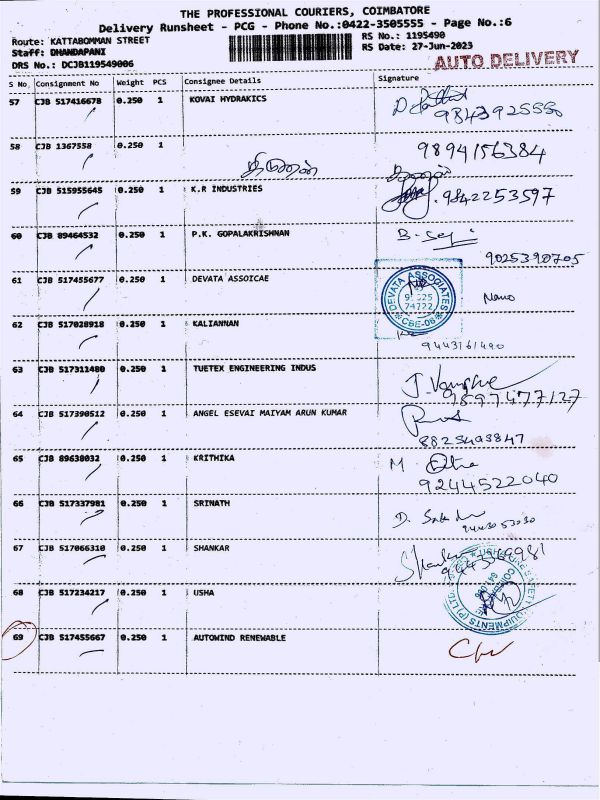 THE PROFESSIONAL COURIERS, COIMBATORE
Delivery Runsheet - PCG - Phone No.:0422-3505555 - Page No.:6
Route: KATTABOMMAN STREET
RS No.: 1195490
Staff: DHANDAPANI
RS Date: 27-Jun-2023
AUTO DELIVERY
DRS No.: DCJB119549006
S No. Consignment No Weight PCS Consignee Details Signature
57 CJB 517416678 0.250 1 KOVAI HYDRAKICS
9843925550
58 CJB 1367558 0.250 1
9894156384
59 CJB 515955645 0.250 1 K.R INDUSTRIES
9842253597
60 CJB 89464532 0.250 1 P.K. GOPALAKRISHNAN
9025390705
61 CJB 517455677 0.250 1 DEVATA ASSOICAE
DEVATA ASSOCIATES
74722
CBE-06
62 CJB 517028918 0.250 1 KALIANNAN
9443161490
63 CJB 517311480 0.250 1 TUETEX ENGINEERING INDUS
9597477127
64 CJB 517390512 0.250 1 ANGEL ESEVAI MAIYAM ARUN KUMAR
8825493847
65 CJB 89638032 0.250 1 KRITHIKA
9244522040
66 CJB 517337981 0.250 1 SRINATH
9443053030
67 CJB 517066310 0.250 1 SHANKAR
Shankar
68 CJB 517234217 0.250 1 USHA
69 CJB 517455667 0.250 1 AUTOWIND RENEWABLE